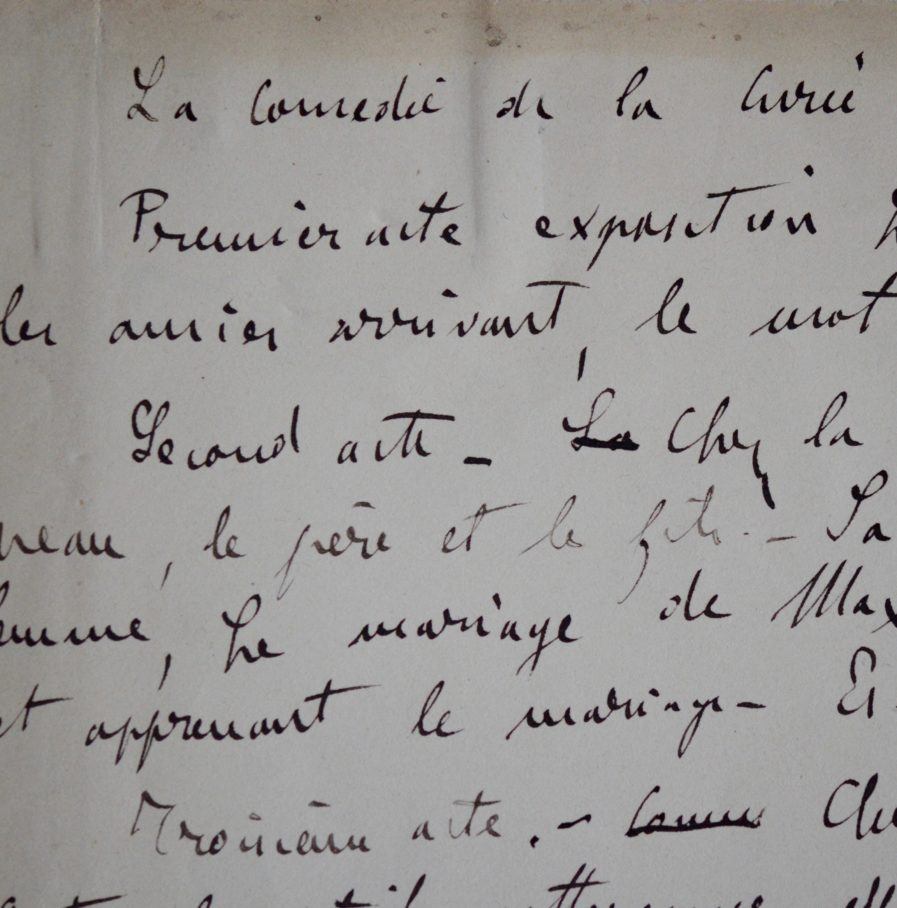 La Comedie de la Curée
Premier acte exposition
les amies arrivant, le mot
Second acte - La Chez la
neau, le père et le fils. - Sa
femme, Le mariage de Max
et apprenant le mariage -
Troisième acte. - Comme